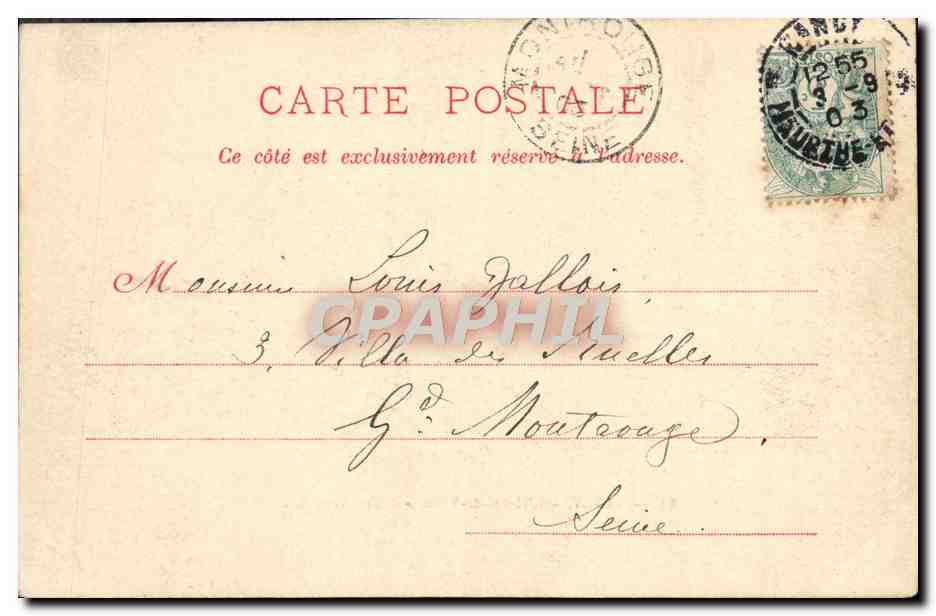 MONTROUGE
SEINE
NANCY
12 55
3 -9
03
MEURTHE-ET
CARTE POSTALE
Ce côté est exclusivement réservé à l'adresse.
Monsieur Louis Dallois,
CPAPHIL
3, Villa des Ruelles
Gd. Montrouge.
Seine